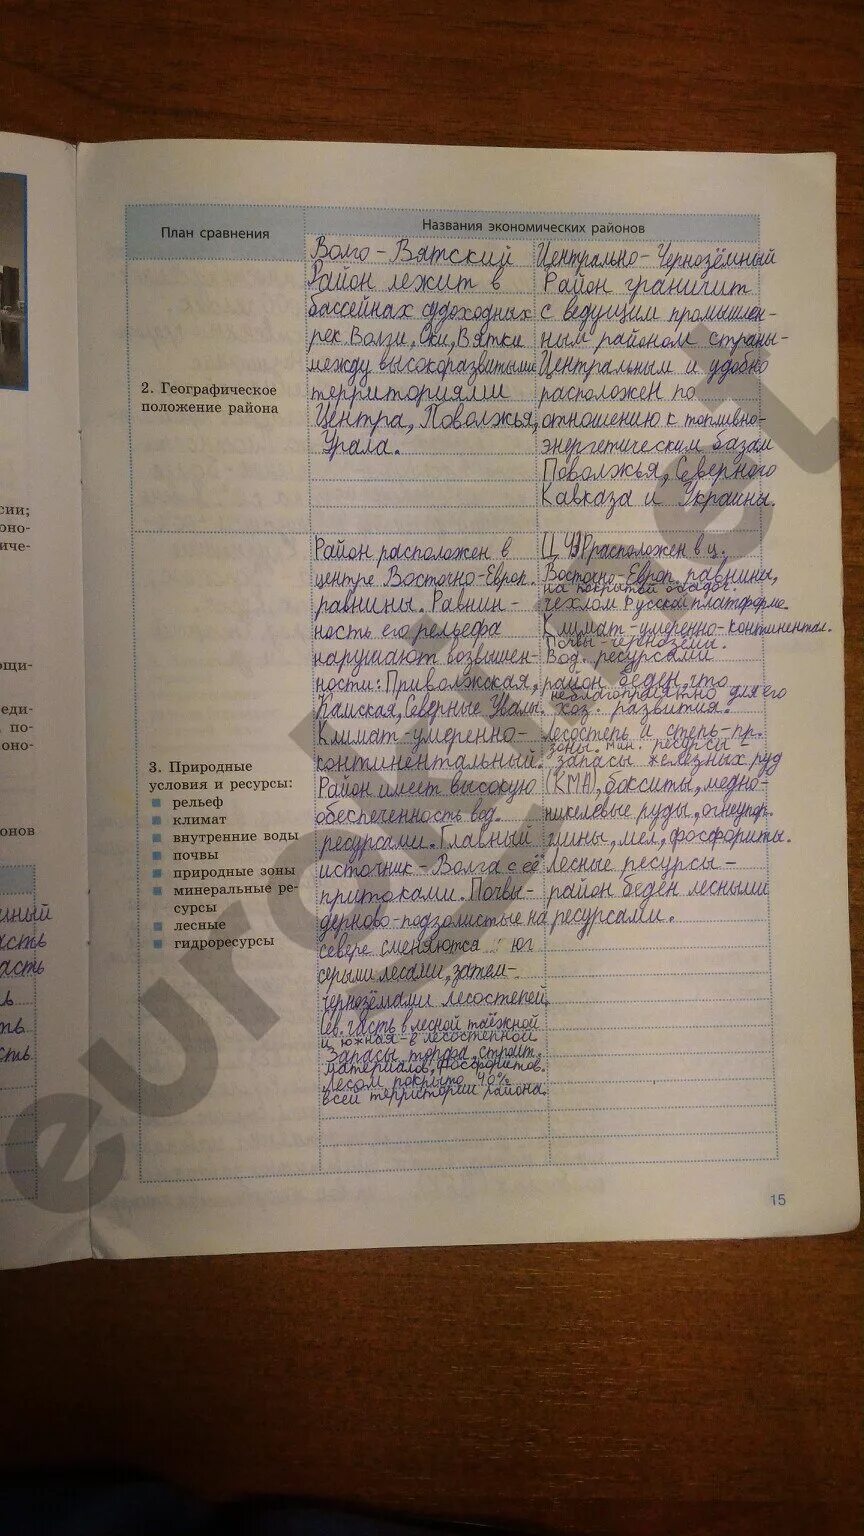 План сравнения
Названия экономических районов
Волго-Вятский
Район лежит в
бассейнах судоходных
рек Волги, Оки, Вятки
между высокоразвитыми
территориями
Центра, Поволжья,
Урала.
Центрально-Чернозёмный
Район граничит
с ведущим промышлен-
ным районом страны-
Центральным и удобно
расположен по
отношению к топливно-
энергетическим базам
Поволжья, Северного
Кавказа и Украины.
2. Географическое
положение района
3. Природные
условия и ресурсы:
рельеф
климат
внутренние воды
почвы
природные зоны
минеральные ре-
сурсы
лесные
гидроресурсы
Район расположен в
центре Восточно-Европ.
равнины. Равнин-
ность его рельефа
нарушают возвышен-
ности: Приволжская,
Камская, Северные Увалы.
Климат-умеренно-
континентальный.
Район имеет высокую
обеспеченность вод.
ресурсами. Главный
источник-Волга с её
притоками. Почвы-
дерново-подзолистые на
севере сменяются юг
серыми лесами, затем-
чернозёмами лесостепей
Сев. часть в лесной таёжной
и южная-в лесостепной
Запасы торфа, строит.
материалов, фосфоритов.
Лесом покрыто 40%
всей территории района.
ЦЧР расположен в ц.
Восточно-Европ. равнины,
на покрытой осадоч.
чехлом Русской платформе.
Климат-умеренно-континентал.
Почвы-чернозёмы.
Вод. ресурсами
район беден, что
неблагоприятно для его
хоз. развития.
лесостепь и степь-пр.
зоны. мин. ресурсы -
запасы железных руд
(КМА), бокситы, медно-
никелевые руды, огнеупор.
глины, мел, фосфориты.
Лесные ресурсы -
район беден лесными
ресурсами.
15
сии;
оно-
иче-
ощи-
еди-
, по-
оно-
онов
асть
асть
ть
сть
euroki.net